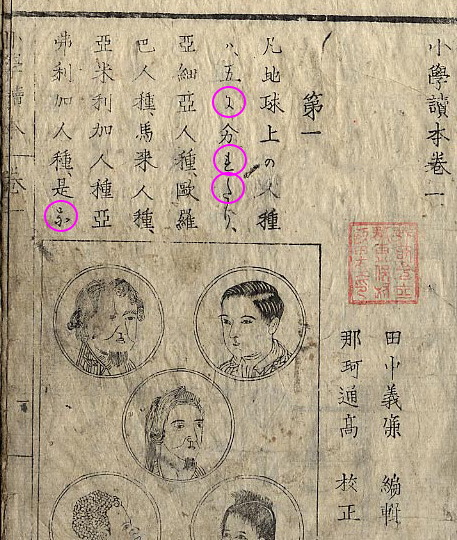 小學讀本卷一
田中義廉 編輯
那珂通高 校正
第一
凡地球上の人種
ハ、五に分れたり、
亞細亞人種、歐羅
巴人種、馬來人種、
亞米利加人種、亞
弗利加人種、是な